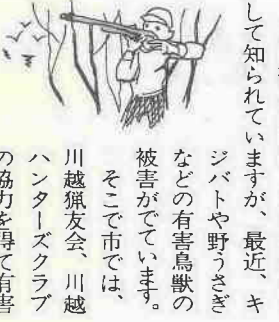 して知られていますが、最近、キ
ジバトや野うさぎ
などの有害鳥獣の
被害がでています。
そこで市では、
川越猟友会、川越
ハンターズクラブ
の協力を得て有害